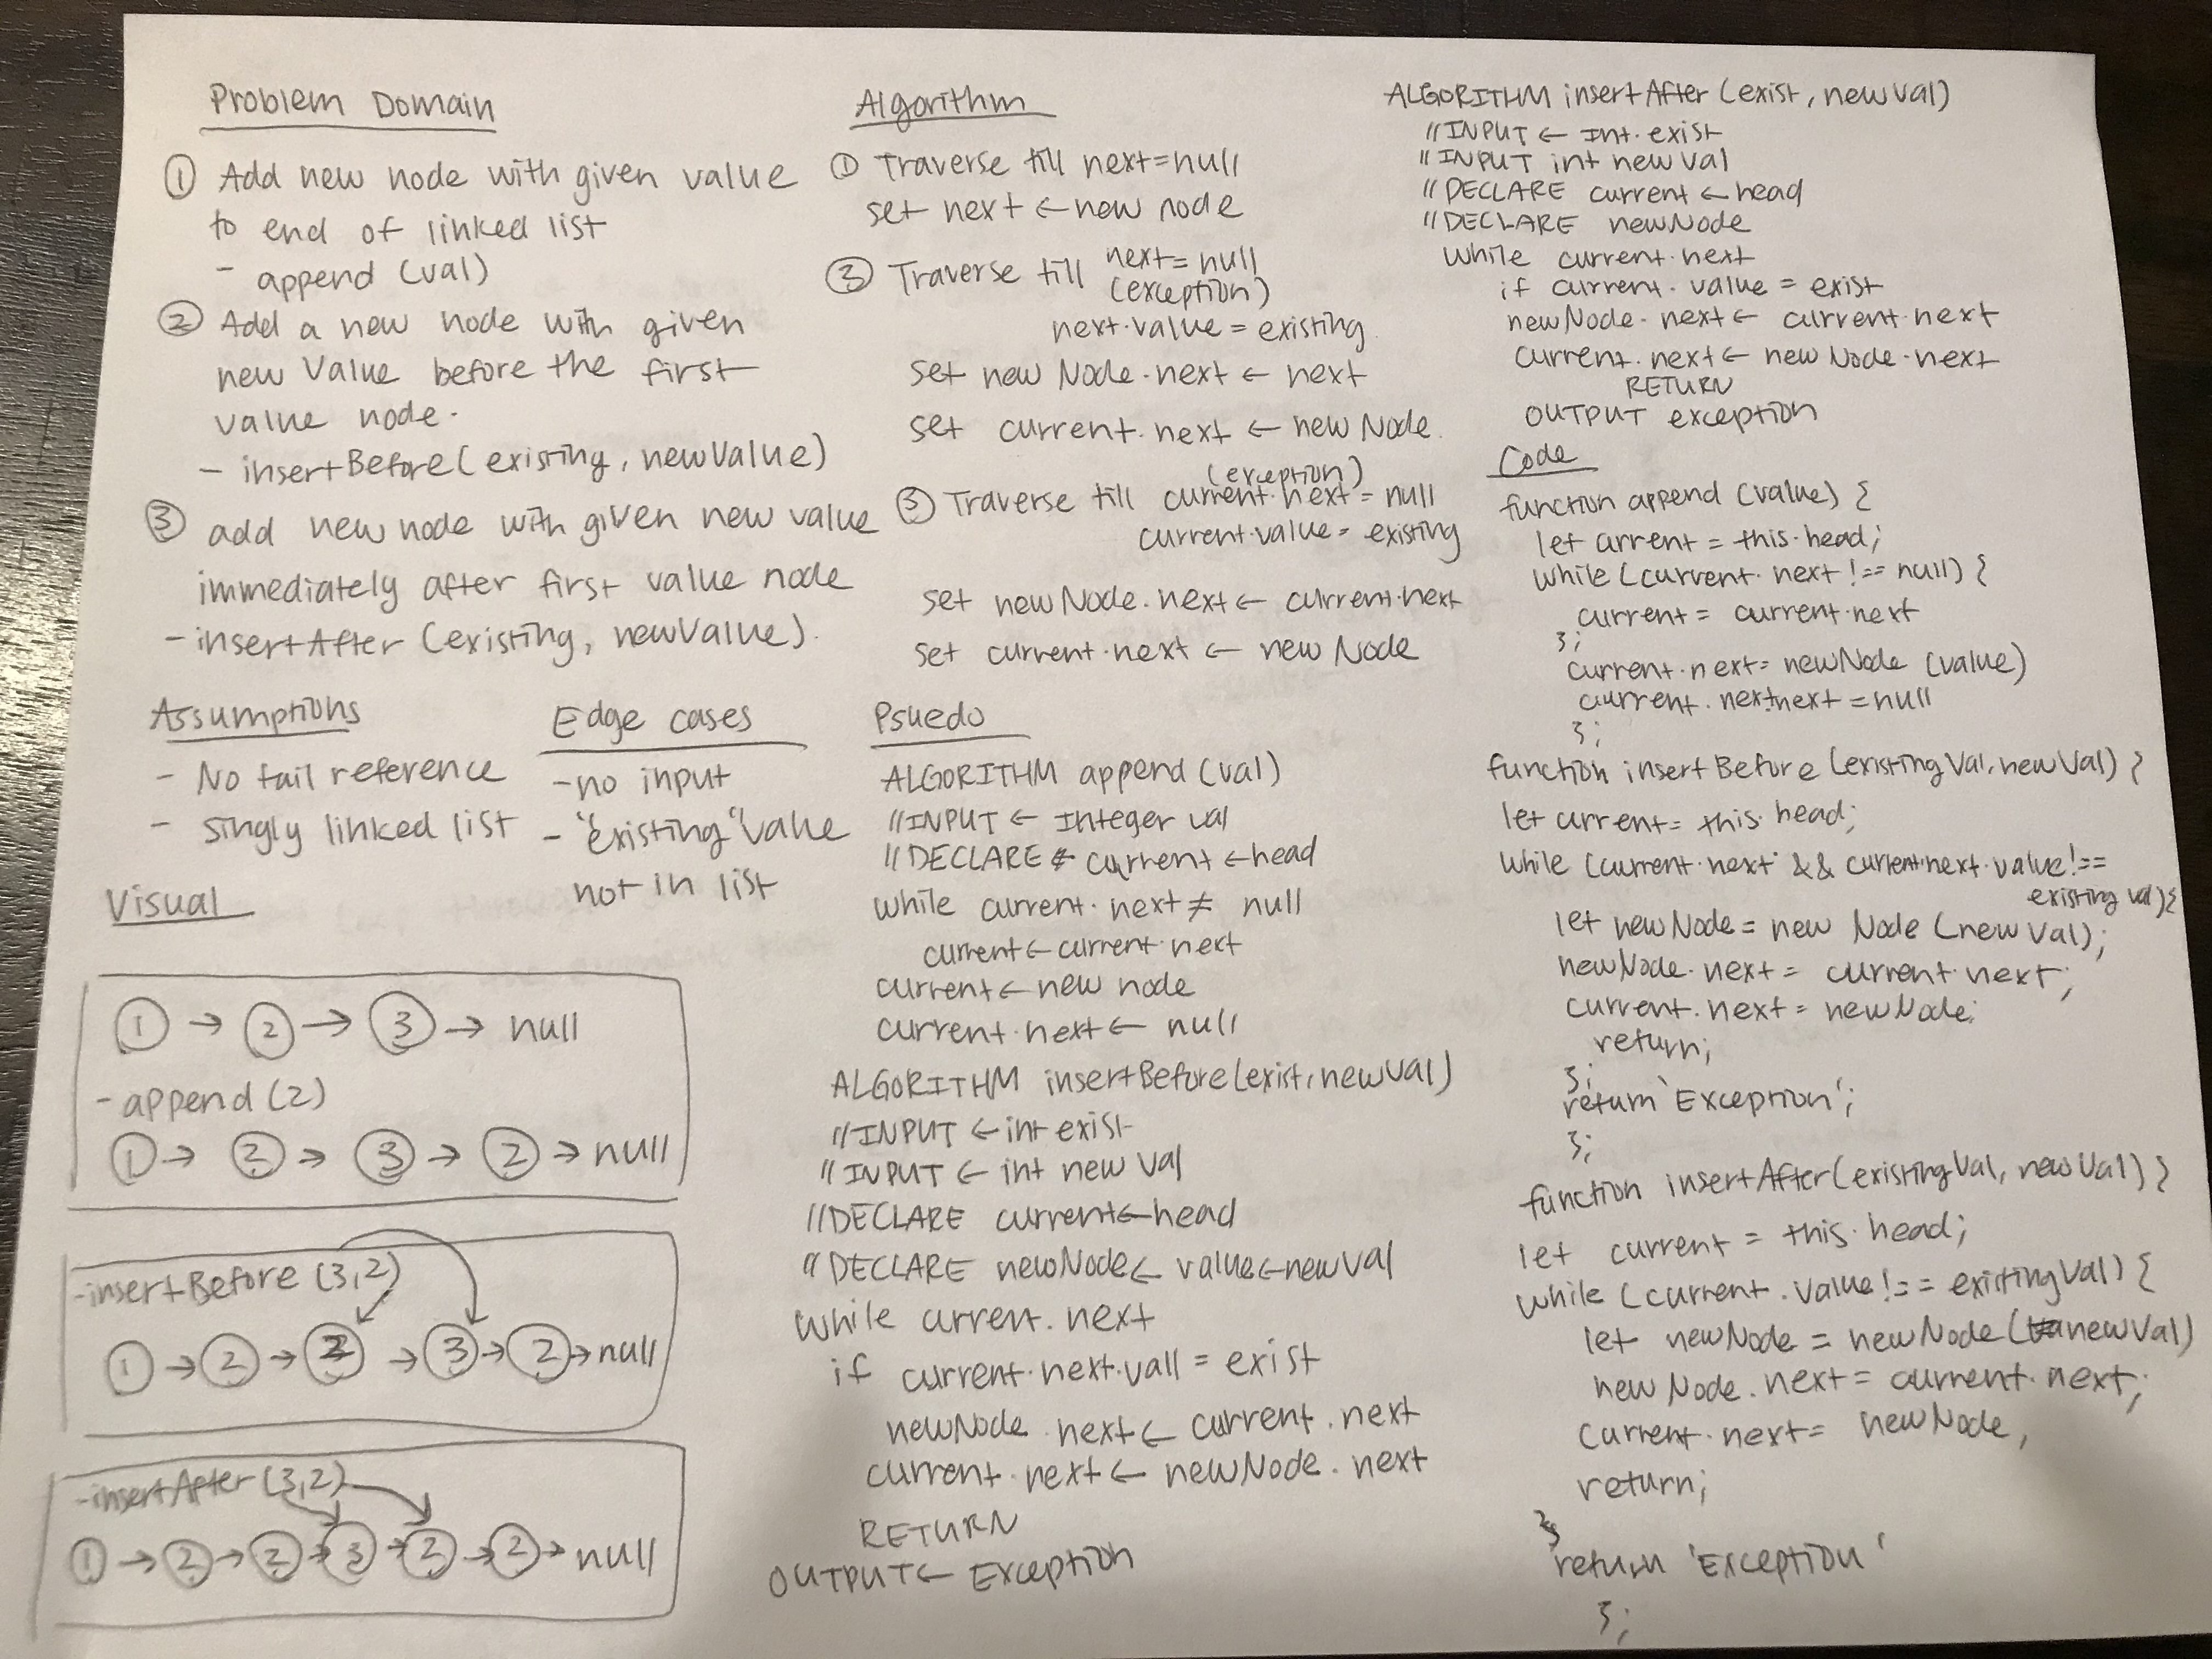 Problem Domain
① Add new node with given value
to end of linked list
- append (val)
② Add a new node with given
new Value before the first
value node.
- insertBefore(existing, newValue)
③ add new node with given new value
immediately after first value node
- insertAfter (existing, newValue).
Assumptions
- No tail reference
- singly linked list
Edge cases
- no input
- "existing" value
not in list
Visual
① → ② → ③ → null
- append (2)
① → ② → ③ → ② → null
- insertBefore (3,2)
① → ② → ② → ③ → ② → null
- insertAfter (3,2)
① → ② → ② → ③ → ② → ② → null
Algorithm
① Traverse till next = null
set next ← new node
② Traverse till next = null
(exception)
next.value = existing
set new Node.next ← next
set current.next ← new Node.
(exception)
③ Traverse till current.next = null
current.value = existing
set newNode.next ← current.next
set current.next ← new Node
Psuedo
ALGORITHM append (val)
//INPUT ← Integer val
//DECLARE ← current ← head
while current.next ≠ null
current ← current.next
current ← new node
current.next ← null
ALGORITHM insertBefore(exist, newVal)
//INPUT ← int exist
//INPUT ← int new Val
//DECLARE current ← head
//DECLARE newNode ← value ← newVal
while current.next
if current.next.vall = exist
newNode.next ← current.next
current.next ← newNode.next
RETURN
OUTPUT ← Exception
ALGORITHM insertAfter (exist, newVal)
//INPUT ← Int.exist
//INPUT int new Val
//DECLARE current ← head
//DECLARE newNode
while current.next
if current.value = exist
newNode.next ← current.next
current.next ← new Node.next
RETURN
OUTPUT exception
Code
function append (value) {
let current = this.head;
while (current.next !== null) {
current = current.next
};
current.next = newNode (value)
current.next.next = null
};
function insertBefore (existingVal, newVal) {
let current = this.head;
while (current.next && current.next.value !==
existing val) {
let newNode = new Node (new Val);
newNode.next = current.next;
current.next = newNode;
return;
};
return 'Exception';
};
function insertAfter(existingVal, newVal) {
let current = this.head;
while (current.value !== existingVal) {
let newNode = newNode (newVal)
new Node.next = current.next;
current.next = newNode,
return;
}
return 'Exception'
};